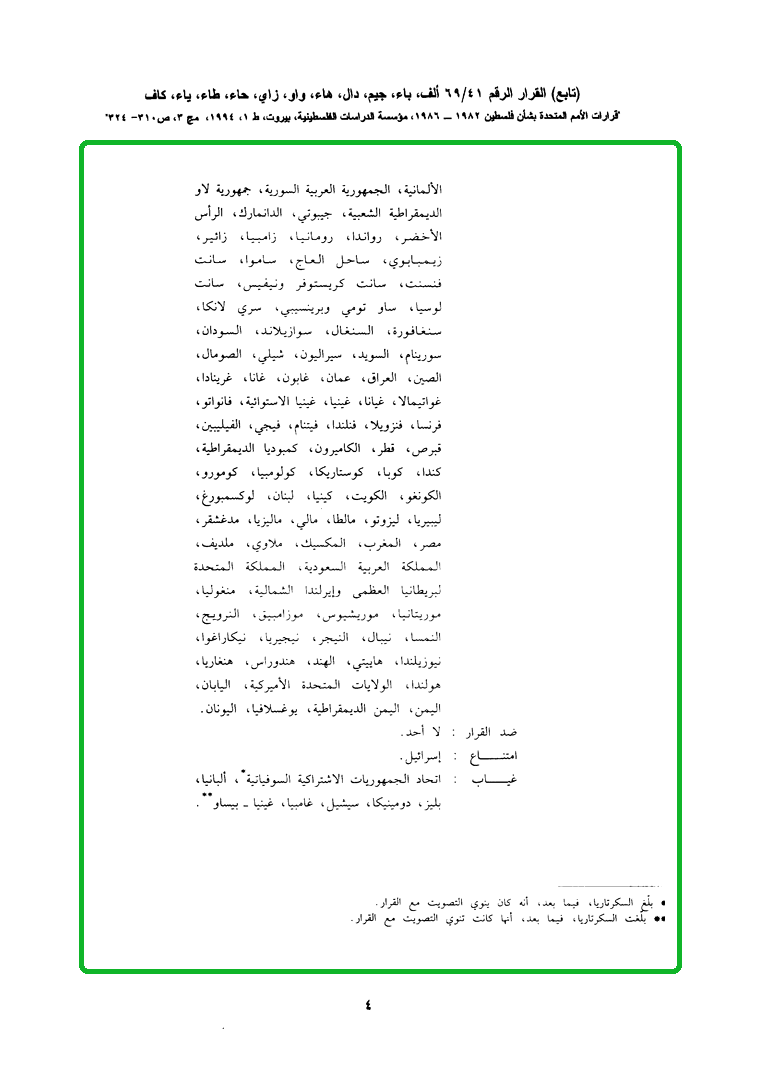 (تابع) القرار الرقم ٦٩/٤١ ألف، باء، جيم، دال، هاء، واو، زاي، حاء، طاء، ياء، كاف
"قرارات الأمم المتحدة بشأن فلسطين ١٩٨٢ ــ ١٩٨٦، مؤسسة الدراسات الفلسطينية، بيروت، ط ١، ١٩٩٤، مج ٣، ص٣١٠– ٣٢٤"
الألمانية، الجمهورية العربية السورية، جمهورية لاو
الديمقراطية الشعبية، جيبوتي، الدانمارك، الرأس
الأخضر، رواندا، رومانيا، زامبيا، زائير،
زيمبابوي، ساحل العاج، ساموا، سانت
فنسنت، سانت كريستوفر ونيفيس، سانت
لوسيا، ساو تومي وبرينسيبي، سري لانكا،
سنغافورة، السنغال، سوازيلاند، السودان،
سورينام، السويد، سيراليون، شيلي، الصومال،
الصين، العراق، عمان، غابون، غانا، غرينادا،
غواتيمالا، غيانا، غينيا، غينيا الاستوائية، فانواتو،
فرنسا، فنزويلا، فنلندا، فيتنام، فيجي، الفيليبين،
قبرص، قطر، الكاميرون، كمبوديا الديمقراطية،
كندا، كوبا، كوستاريكا، كولومبيا، كومورو،
الكونغو، الكويت، كينيا، لبنان، لوكسمبورغ،
ليبيريا، ليزوتو، مالطا، مالي، ماليزيا، مدغشقر،
مصر، المغرب، المكسيك، ملاوي، ملديف،
المملكة العربية السعودية، المملكة المتحدة
لبريطانيا العظمى وإيرلندا الشمالية، منغوليا،
موريتانيا، موريشيوس، موزامبيق، النرويج،
النمسا، نيبال، النيجر، نيجيريا، نيكاراغوا،
نيوزيلندا، هاييتي، الهند، هندوراس، هنغاريا،
هولندا، الولايات المتحدة الأميركية، اليابان،
اليمن، اليمن الديمقراطية، يوغسلافيا، اليونان.
ضد القرار : لا أحد.
امتنــــاع : إسرائيل.
غيــــاب : اتحاد الجمهوريات الاشتراكية السوفياتية*، ألبانيا،
بليز، دومينيكا، سيشيل، غامبيا، غينيا ـ بيساو**.
* بلّغ السكرتاريا، فيما بعد، أنه كان ينوي التصويت مع القرار.
** بلّغت السكرتاريا، فيما بعد، أنها كانت تنوي التصويت مع القرار.
٤